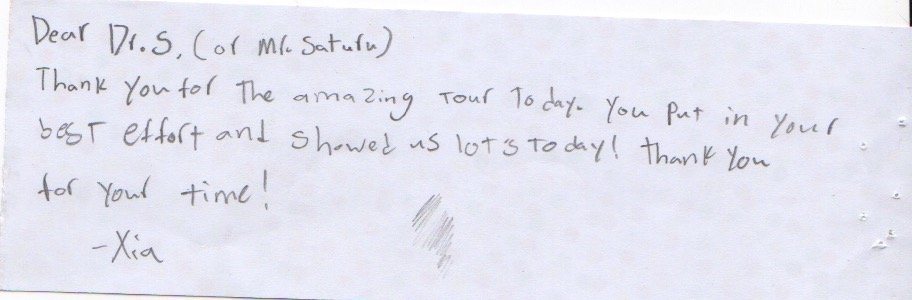 Dear Dr. S, (or Mr. Saturu)
Thank you for the amazing tour today. You put in your
best effort and showed us lots today! Thank you
for your time!
-Xia